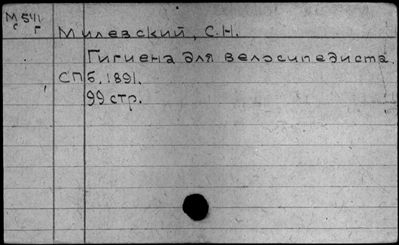 М 541
с г
Милевский, С.Н.
Гигиена для велосипедиста.
СПб. 1891.
99 стр.